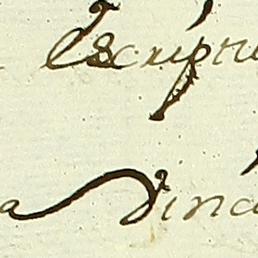 Escriptu
a dina